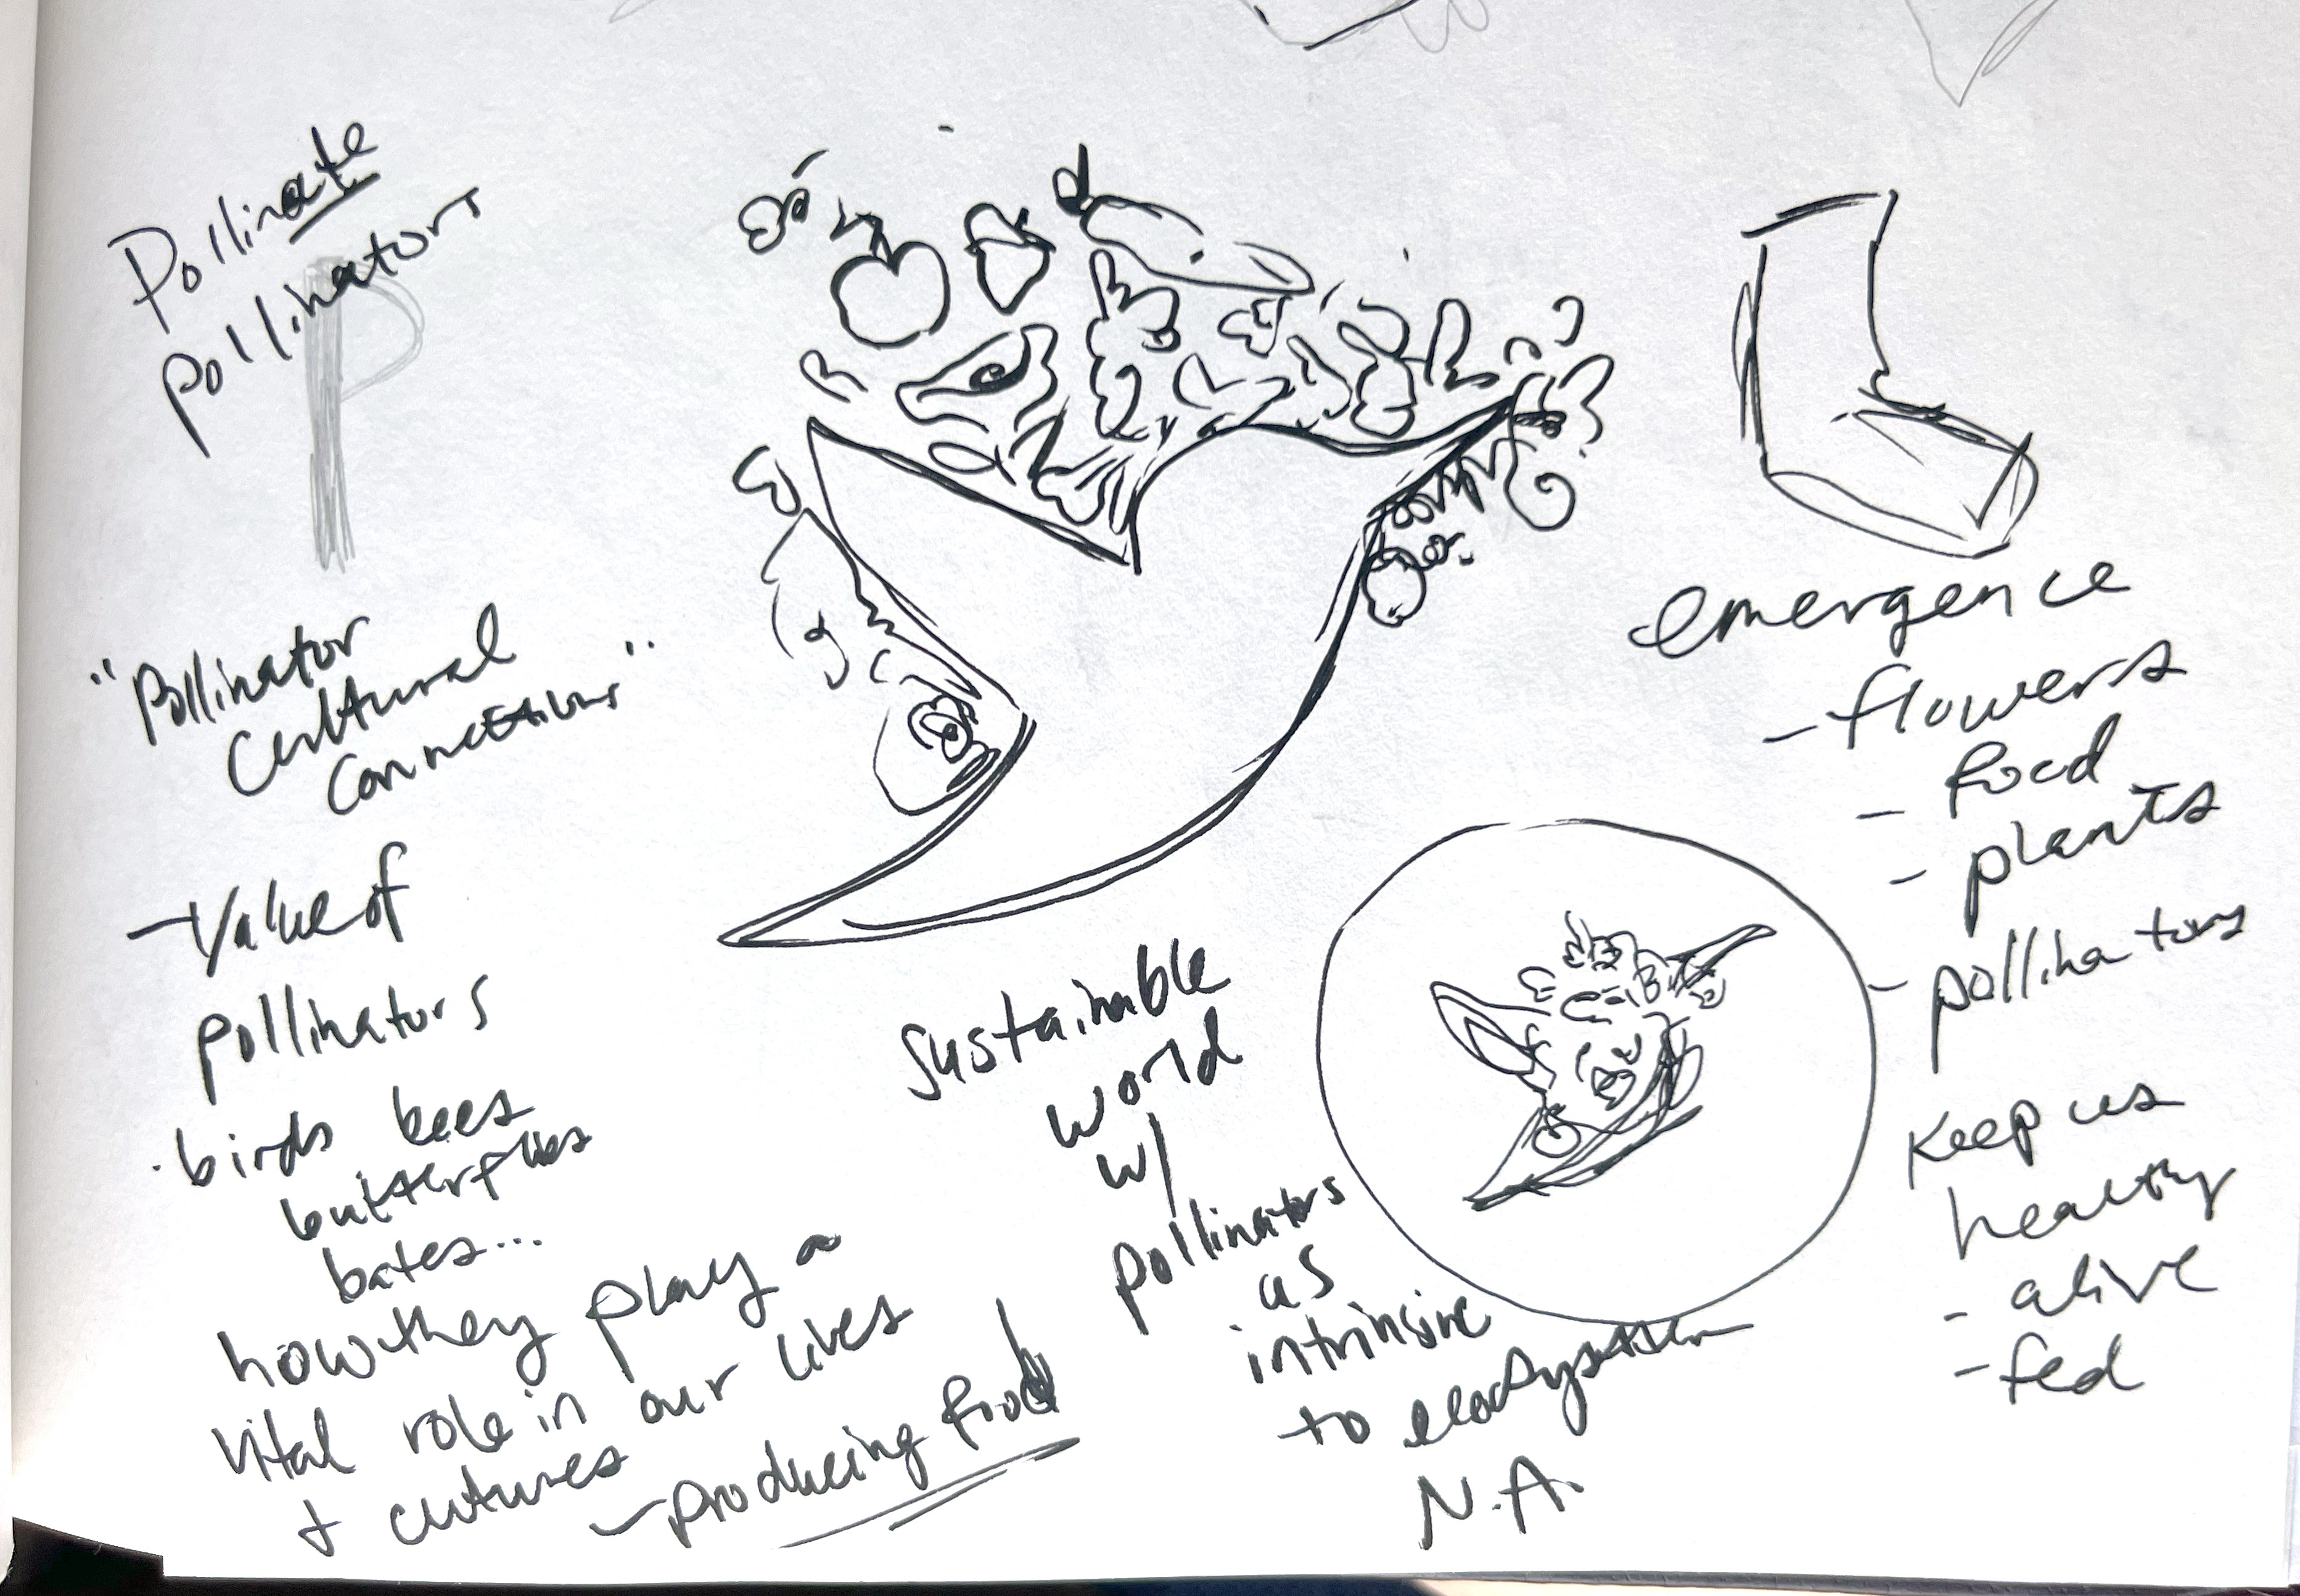 Pollinate
pollinators
"Pollinator
Cultural
Connections"
- Value of
pollinators
. birds bees
butterflies
bates...
how they play a
vital role in our lives
+ cutures
- producing food
sustainable
world
w/
pollinators
as
intrinsive
to
N.A.
emergence
- flowers
- food
- plants
- pollinators
Keep us
healthy
- alive
- fed